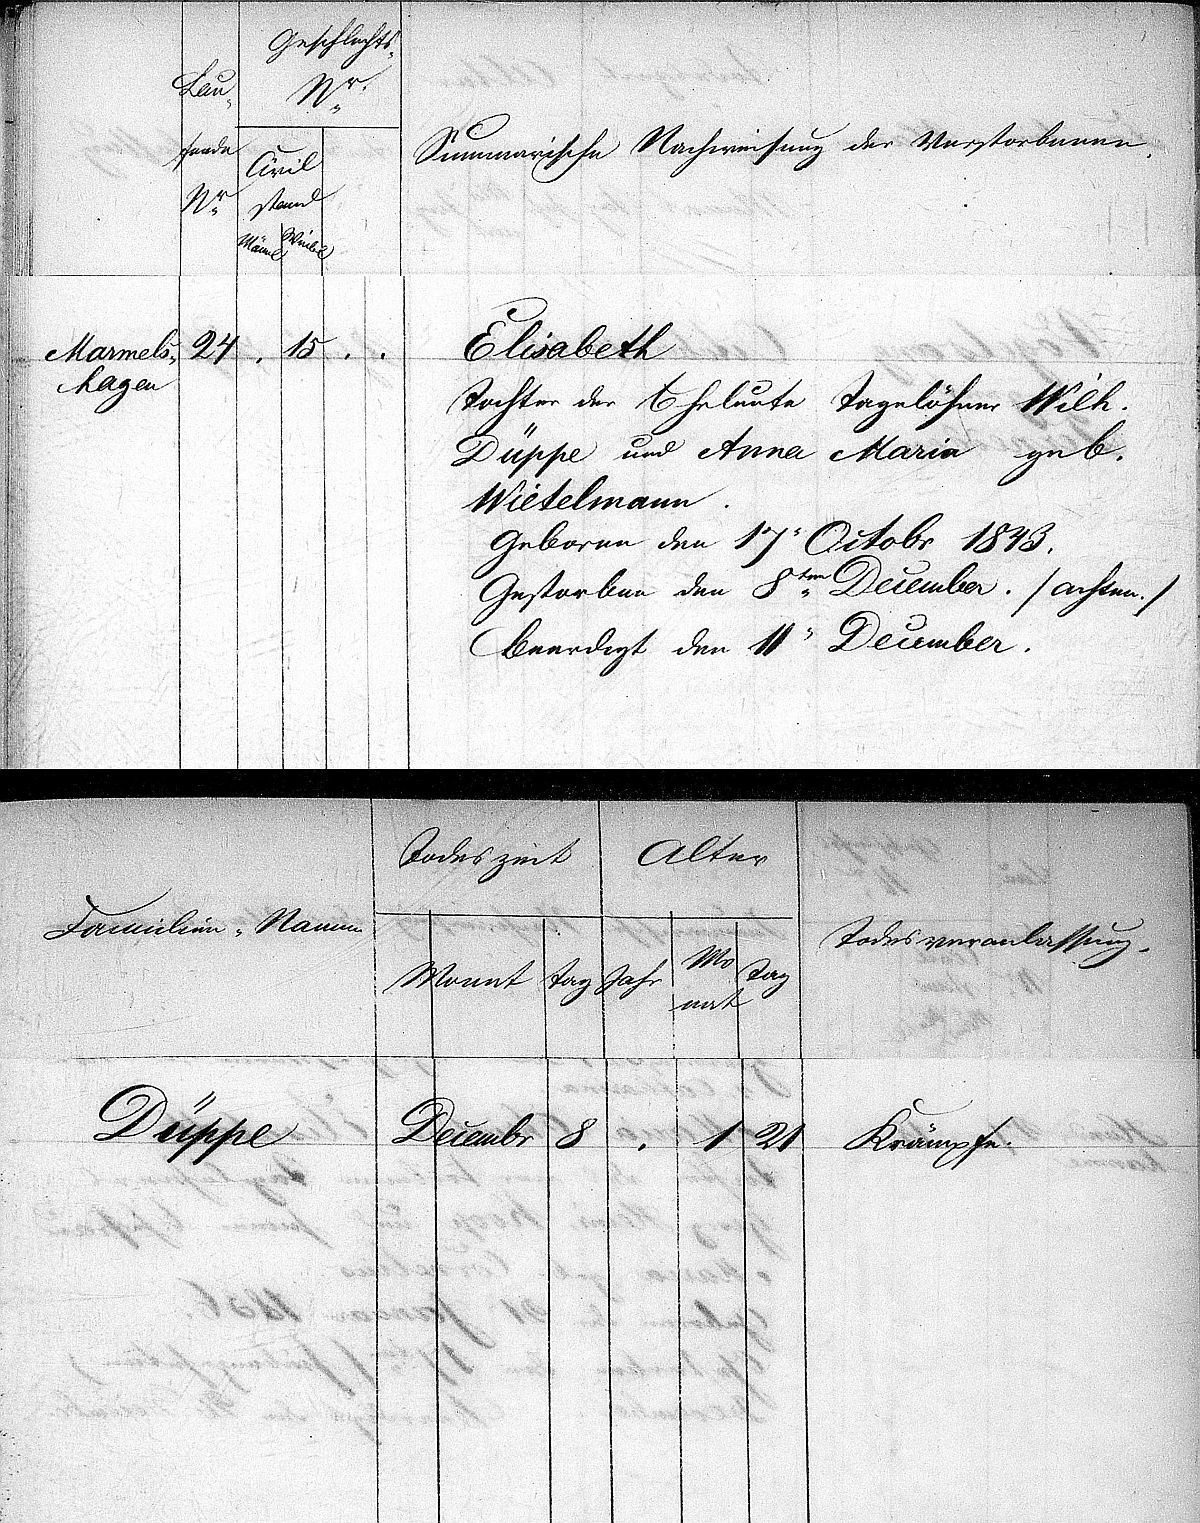 Geschlechts-
Nr.
Lau-
fende
Nr
Civil
stand
Männl
Weibl
Summarische Nachweisung der Verstorbenen.
Marmels-
hagen
24 . 15 . .
Elisabeth
Tochter der Eheleute Tagelöhner Wilh.
Düppe und Anna Maria geb.
Wietelmann.
Geboren den 17. Octobr 1843.
Gestorben den 8ten December. /achten./
Beerdigt den 11. December.
Todeszeit
Alter
Familien-Namen
Monat
Tag
Jahr
Mo
nat
Tag
Todesveranlassung.
Düppe
Decembr 8 . 1 21
Krämpfe.